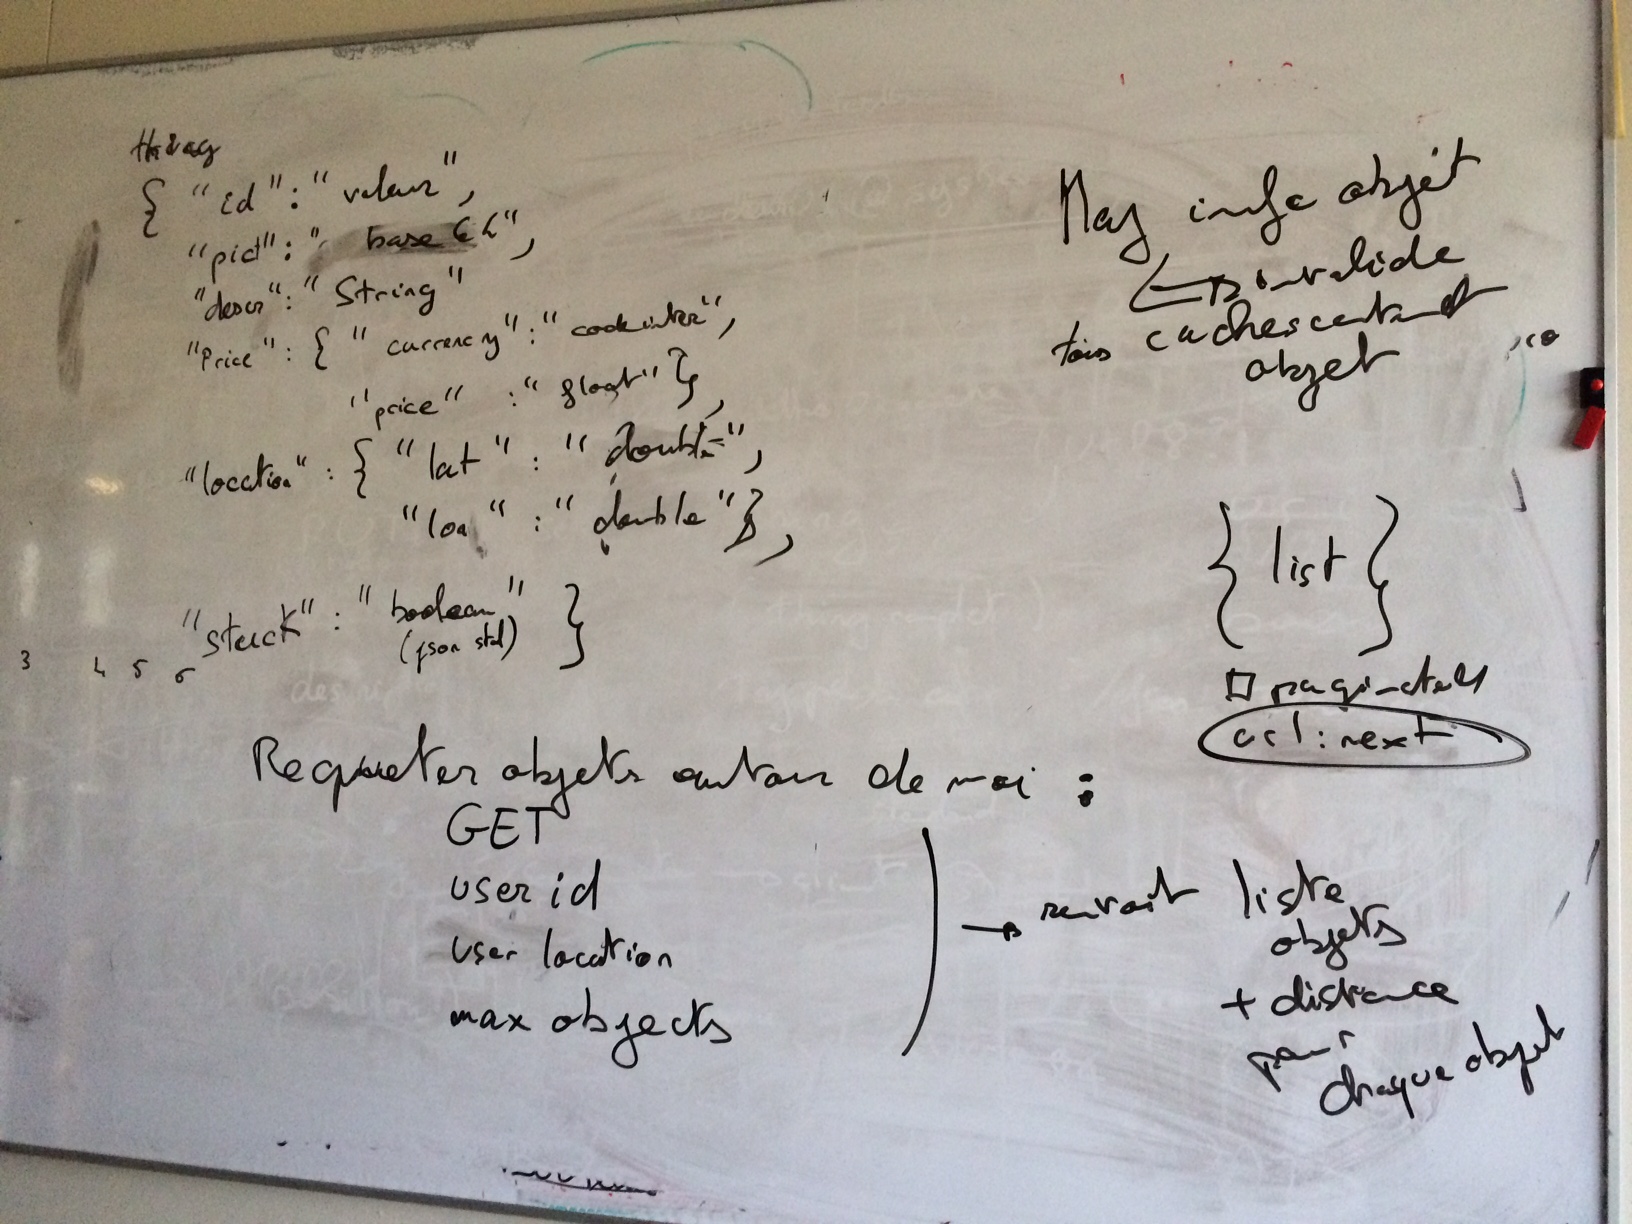 thing
{ "id" : "valeur",
"pict" : " base 64",
"descr" : " String"
"Price" : { " currency" : " code inter",
"price" : " float" },
"location" : { " lat " : " double",
"lon " : " double" } ,
"stuck" : " boolean " }
(json std)
3 4 5 6
Maj info objet
↳ invalide
tous caches contenant
objet
{ list }
url : next
Requeter objets autour de moi :
GET
user id
user location
max objects
→ renvoit liste
objets
+ distance
pour
chaque objet